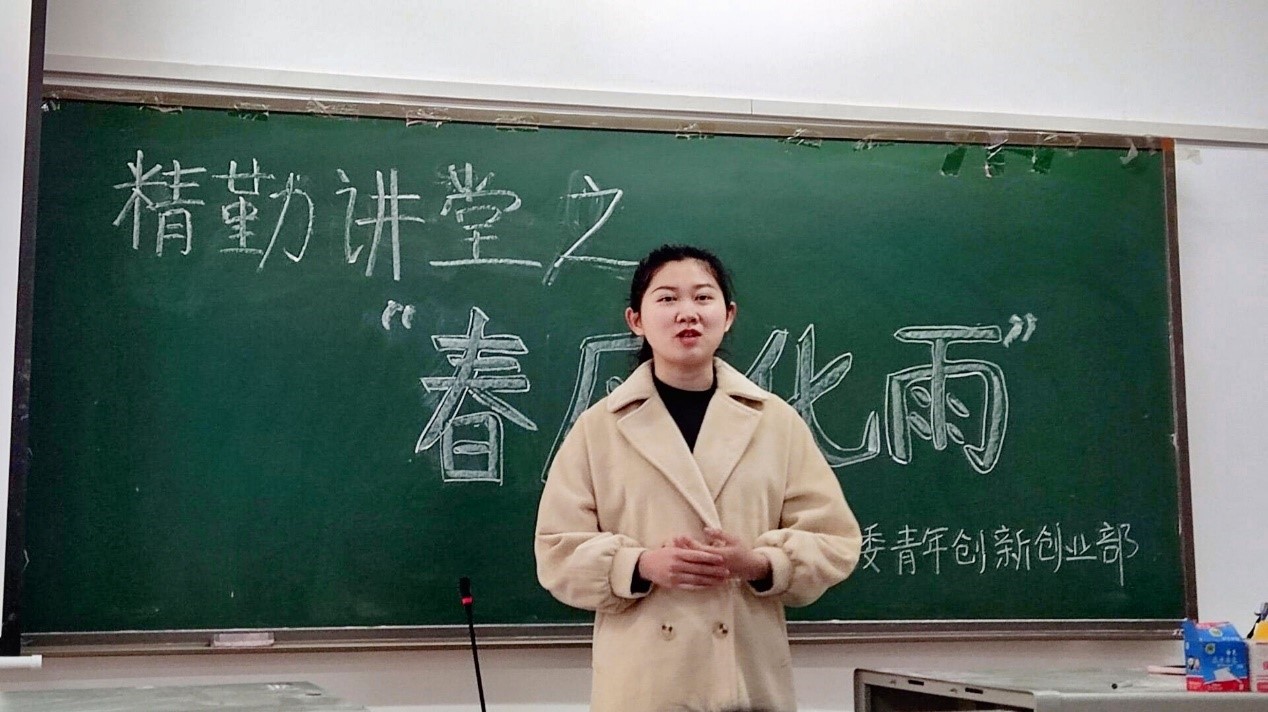 精勤讲堂之
“春风化雨”
委青年创新创业部